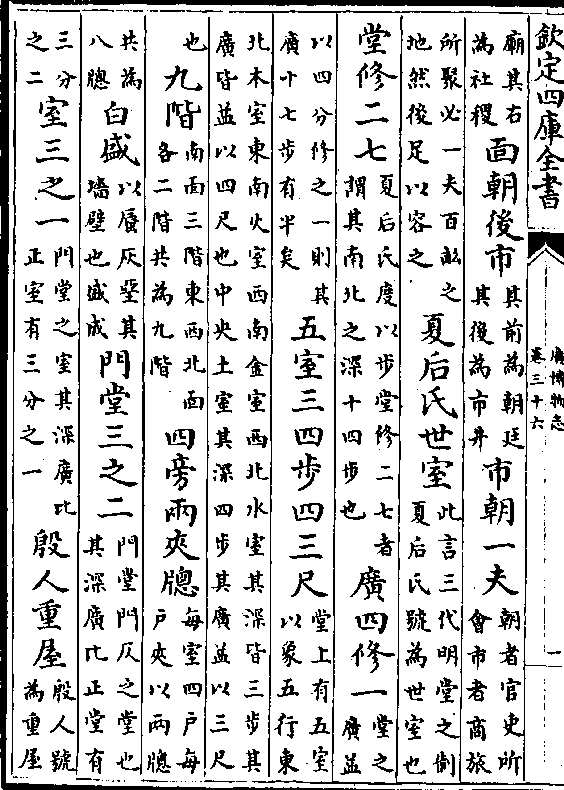 欽定四庫全書
廣博物志
卷三十六
一
廟其右為社稷面朝後市其前為朝廷其後為市井市朝一夫朝者官吏所會市者商旅
所聚必一夫百畝之地然後足以容之夏后氏世室此言三代明堂之制夏后氏號為世室也
堂修二七夏后氏度以步堂修二七者謂其南北之深十四步也廣四修一堂之廣益
以四分修之一則其廣十七步有半矣五室三四步四三尺堂上有五室以象五行東
北木室東南火室西南金室西北水室其深皆三步其廣皆益以四尺也中央土室其深四步其廣益以三尺
也九階南面三階東西北面各二階共為九階四旁兩夾牕每室四戶每戶夾以兩牕
共為八牕白盛以蜃灰堊其墻壁也盛成門堂三之二門堂門仄之堂也其深廣比正堂有
三分之二室三之一門堂之室其深廣比正室有三分之一殷人重屋殷人號為重屋